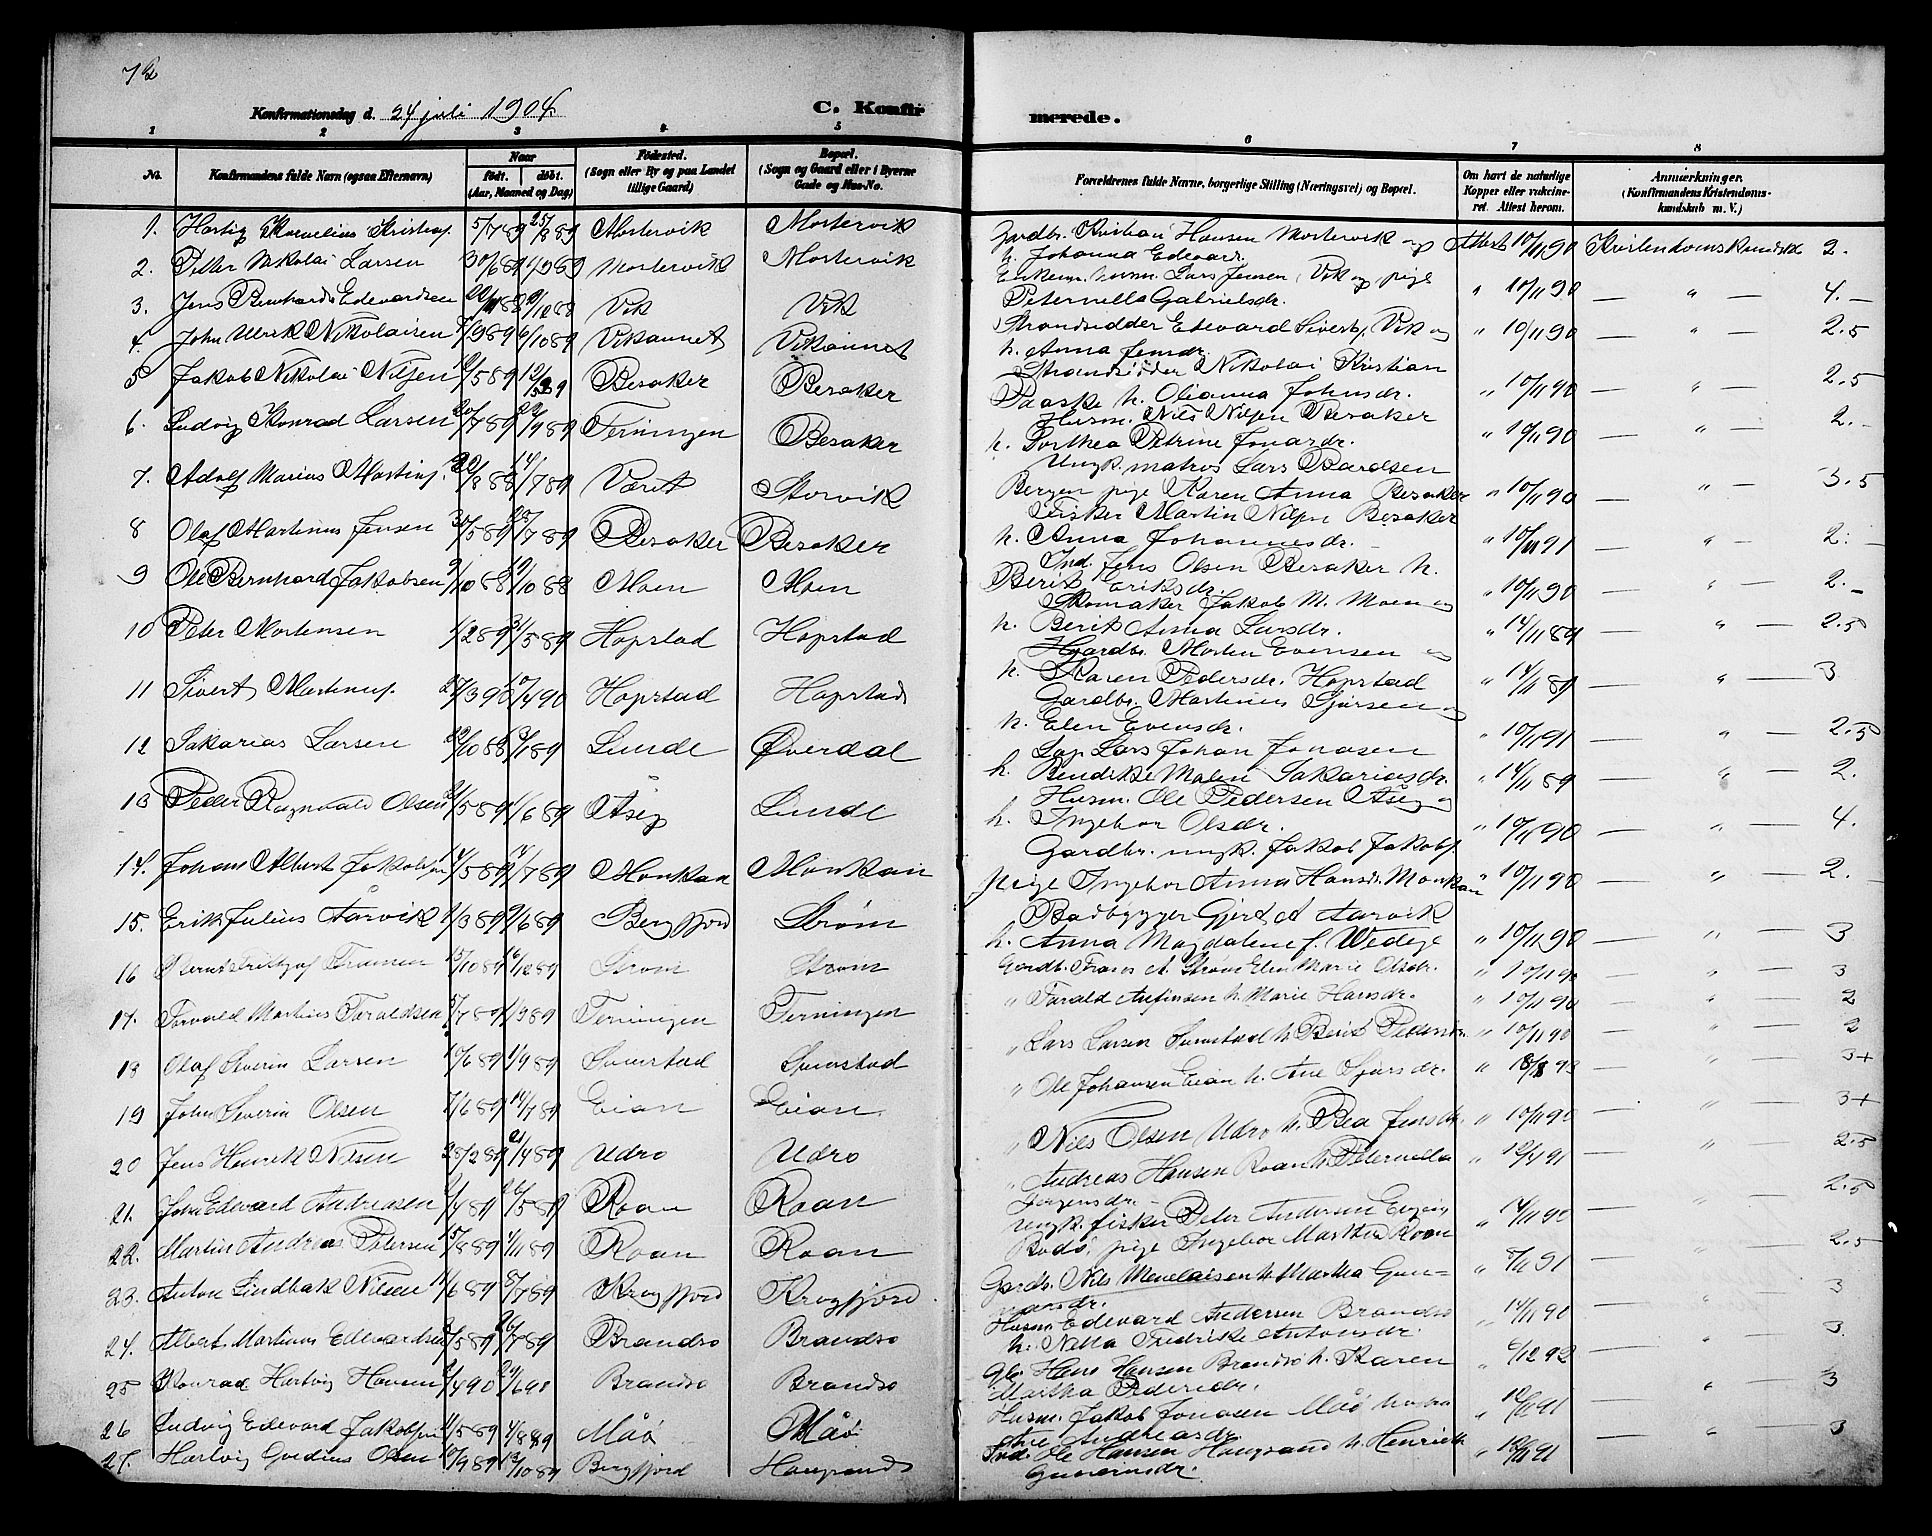 72
Konfirmationsdag d. 24 juli 1904.
C. Konfirmerede.
1 2 3 4 5 6 7 8
No.
Konfirmandens fulde Navn (ogsaa Efternavn)
Naar
født. døbt.
(Aar, Maaned og Dag)
Fødested.
(Sogn eller By og paa Landet
tillige Gaard)
Bopæl.
(Sogn og Gaard eller i Byerne
Gade og Hus-No.
Forældrenes fulde Navne, borgerlige Stilling (Næringsvei) og Bopæl.
Om havt de naturlige
Kopper eller vakcine-
ret. Attest herom.
Anmærkninger.
(Konfirmandens Kristendoms-
kundskab m. V.)
1. Hartvig Kornelius Kristians. 5/7 89 25/8 89 Mostervik Mostervik
2. Petter Nikolai Larsen 30/6 89 1/9 89 Mostervik Mostervik
3. Jens Reinhardt Edevardsen 88 /12 88 Vik Vik
4. John Ulrik Nikolaisen /9 89 6/10 89 Vikaunet Vikaunet
5 Jakob Nikolai Nilsen /5 89 Besaker Besaker
6. Ludvig Konrad Larsen 20/7 89 22/9 89 Terningen Besaker
7. Adolf Marius Martins. /8 88 14/7 89 Været Storvik
8 Olaf Martinus Jensen 30/5 89 /7 89 Besaker Besaker
9 Ole Bernhard Jakobsen 9/10 88 /10 88 Moen Moen
10 Peter Mortensen /2 89 /5 89 Hopstad Hopstad
11 Sivert Martinus. 27/3 90 /4 90 Hopstad Hopstad
12 Sakarias Larsen /10 88 /1 89 Lunde Øverdal
13 Peder Ragnvald Olsen /5 89 /6 89 Aseg Lunde
14. Johan Albert Jakobsen /5 89 /7 89 Monkan Monkan
15. Erik Julius Aarvik /3 89 9/6 89 Bergfjord Strøm
16 Bernt Fritjof Fransen 15/10 89 /12 89 Strøm Strøm
17. Torvald Martinus Taraldsen 5/7 89 1/9 89 Terningen Terningen
18 Olaf Severin Larsen 10/6 89 1/9 89 Sumstad Sumstad
19 John Severin Olsen 7/6 89 14/7 89 Eian Eian
20 Jens Henrik Nilsen 28/2 89 21/4 89 Udro Udro
21. John Edevard Andreasen /4 89 26/5 89 Roan Roan
22. Martin Andreas Petersen 15/8 89 /11 89 Roan Roan
23. Anton Lindbak Nilsen 11/6 89 8/7 89 Krogfjord Krogfjord.
24. Albert Martinus Edevardsen /5 89 /7 89 Brandsø Brandsø
25 Konrad Hartvig Hansen /4 90 /6 90 Brandsø Brandsø
26 Ludvig Edevard Jakobsen 11/5 89 4/8 89 Måø Måø
27. Hartvig Gudius Olsen 10/9 89 13/10 89 Bergfjord Haugrand
Gardbr. Kristian Hansen Mostervik og Attest 10/11 90 Kristendomskundsk 2.
h. Johanna Edevar.
Enkem. husm. Lars Jensen, Vik og pige " 10/11 90 — " — 4.—
Peternella Gabrielsdr.
Strandsidder Edevard Sivertsen, Vik og " 10/11 90 — " — 2.5
h. Anna Jensdr.
Strandsidder Nikolai Kristian " 10/11 90 — " — 2.5
Paaske h. Olianna Johnsdr.
Husm. Nils Nilsen Besaker " 10/11 90 — " — 2.-
h. Dorthea Petrine Jonasdr.
Ungk. matros Lars Bardsen " 10/11 90 — " — 3.5
Bergen pige Karen Anna Besaker
Fisker Martin Nilsen Besaker " 10/11 91 — " — 2.—
h. Anna Johannesdr.
Ind. Jens Olsen Besaker h. " 10/11 90 — " — 2.—
Berit Eriksdr.
Skomaker Jakob M. Moen og " 14/11 89 — " — 2.5
h. Berit Anna Larsdr.
Gardbr. Morten Evensen og " 14/11 89 — " — 3
h. Karen Pedersdr. Hopstad
Gardbr. Martinus Sjursen og " 10/11 91 — " — 2.5
h. Elen Evensdr.
Lap Lars Johan Jonasen " 14/11 89 — " — 2.
h. Bendikte Malen Sakariasdr.
Husm. Ole Pedersen Aseg og " 10/11 90 — " — 4.
h. Ingebor Olsdr.
Gardbr. ungk. Jakob Jakobs. " 10/11 90 — " — 2.
pige Ingebor Anna Hansdr. Monkan
Baadbygger Gjert A Aarvik " 10/11 90 — " — 3
h. Anna Magdalene f. Wedege
Gardb. Frans A. Strøm Elen Marie Olsdr. " 10/11 90 — " — 3
" Tarald Anfinsen h. Marie Hansdr. " 10/11 90 — " — 2
" Lars Larsen Sumstad h. Berit Pedersdr. " 10/11 90 — " — 2
" Ole Johansen Eian h. Ane Sjursdr. " 93 — " — 3+
" Nils Olsen Udro h. Bea Jensdr. " 10/11 90 — " — 3+
" Andreas Hansen Roan h. Peternella " 91 — " — 2.5
Jørgensdr.
Ungk. fisker Peter Andersen " 14/11 90 — " — 2.5
Bodø, pige Ingebor Marthea Roan
Gardb. Nils Menelaisen h. Martha Gun- " 8/11 91 — " — 2.5
narsdr.
Husm. Edevard Andersen Brandsø " 14/11 90 — " — 3
h. Netta Fredrikke Antonsdr.
Gb. Hans Hansen Brandsø h. Karen " /12 92 — " — 3.
Martha Pedersdr.
Husm. Jakob Jonasen Måø h. " 91 — " — 3
Ane Andreasdr.
Ind. Ole Hansen Haugrand h. Henriette " 91 — " — 3
Gunnarsdr.